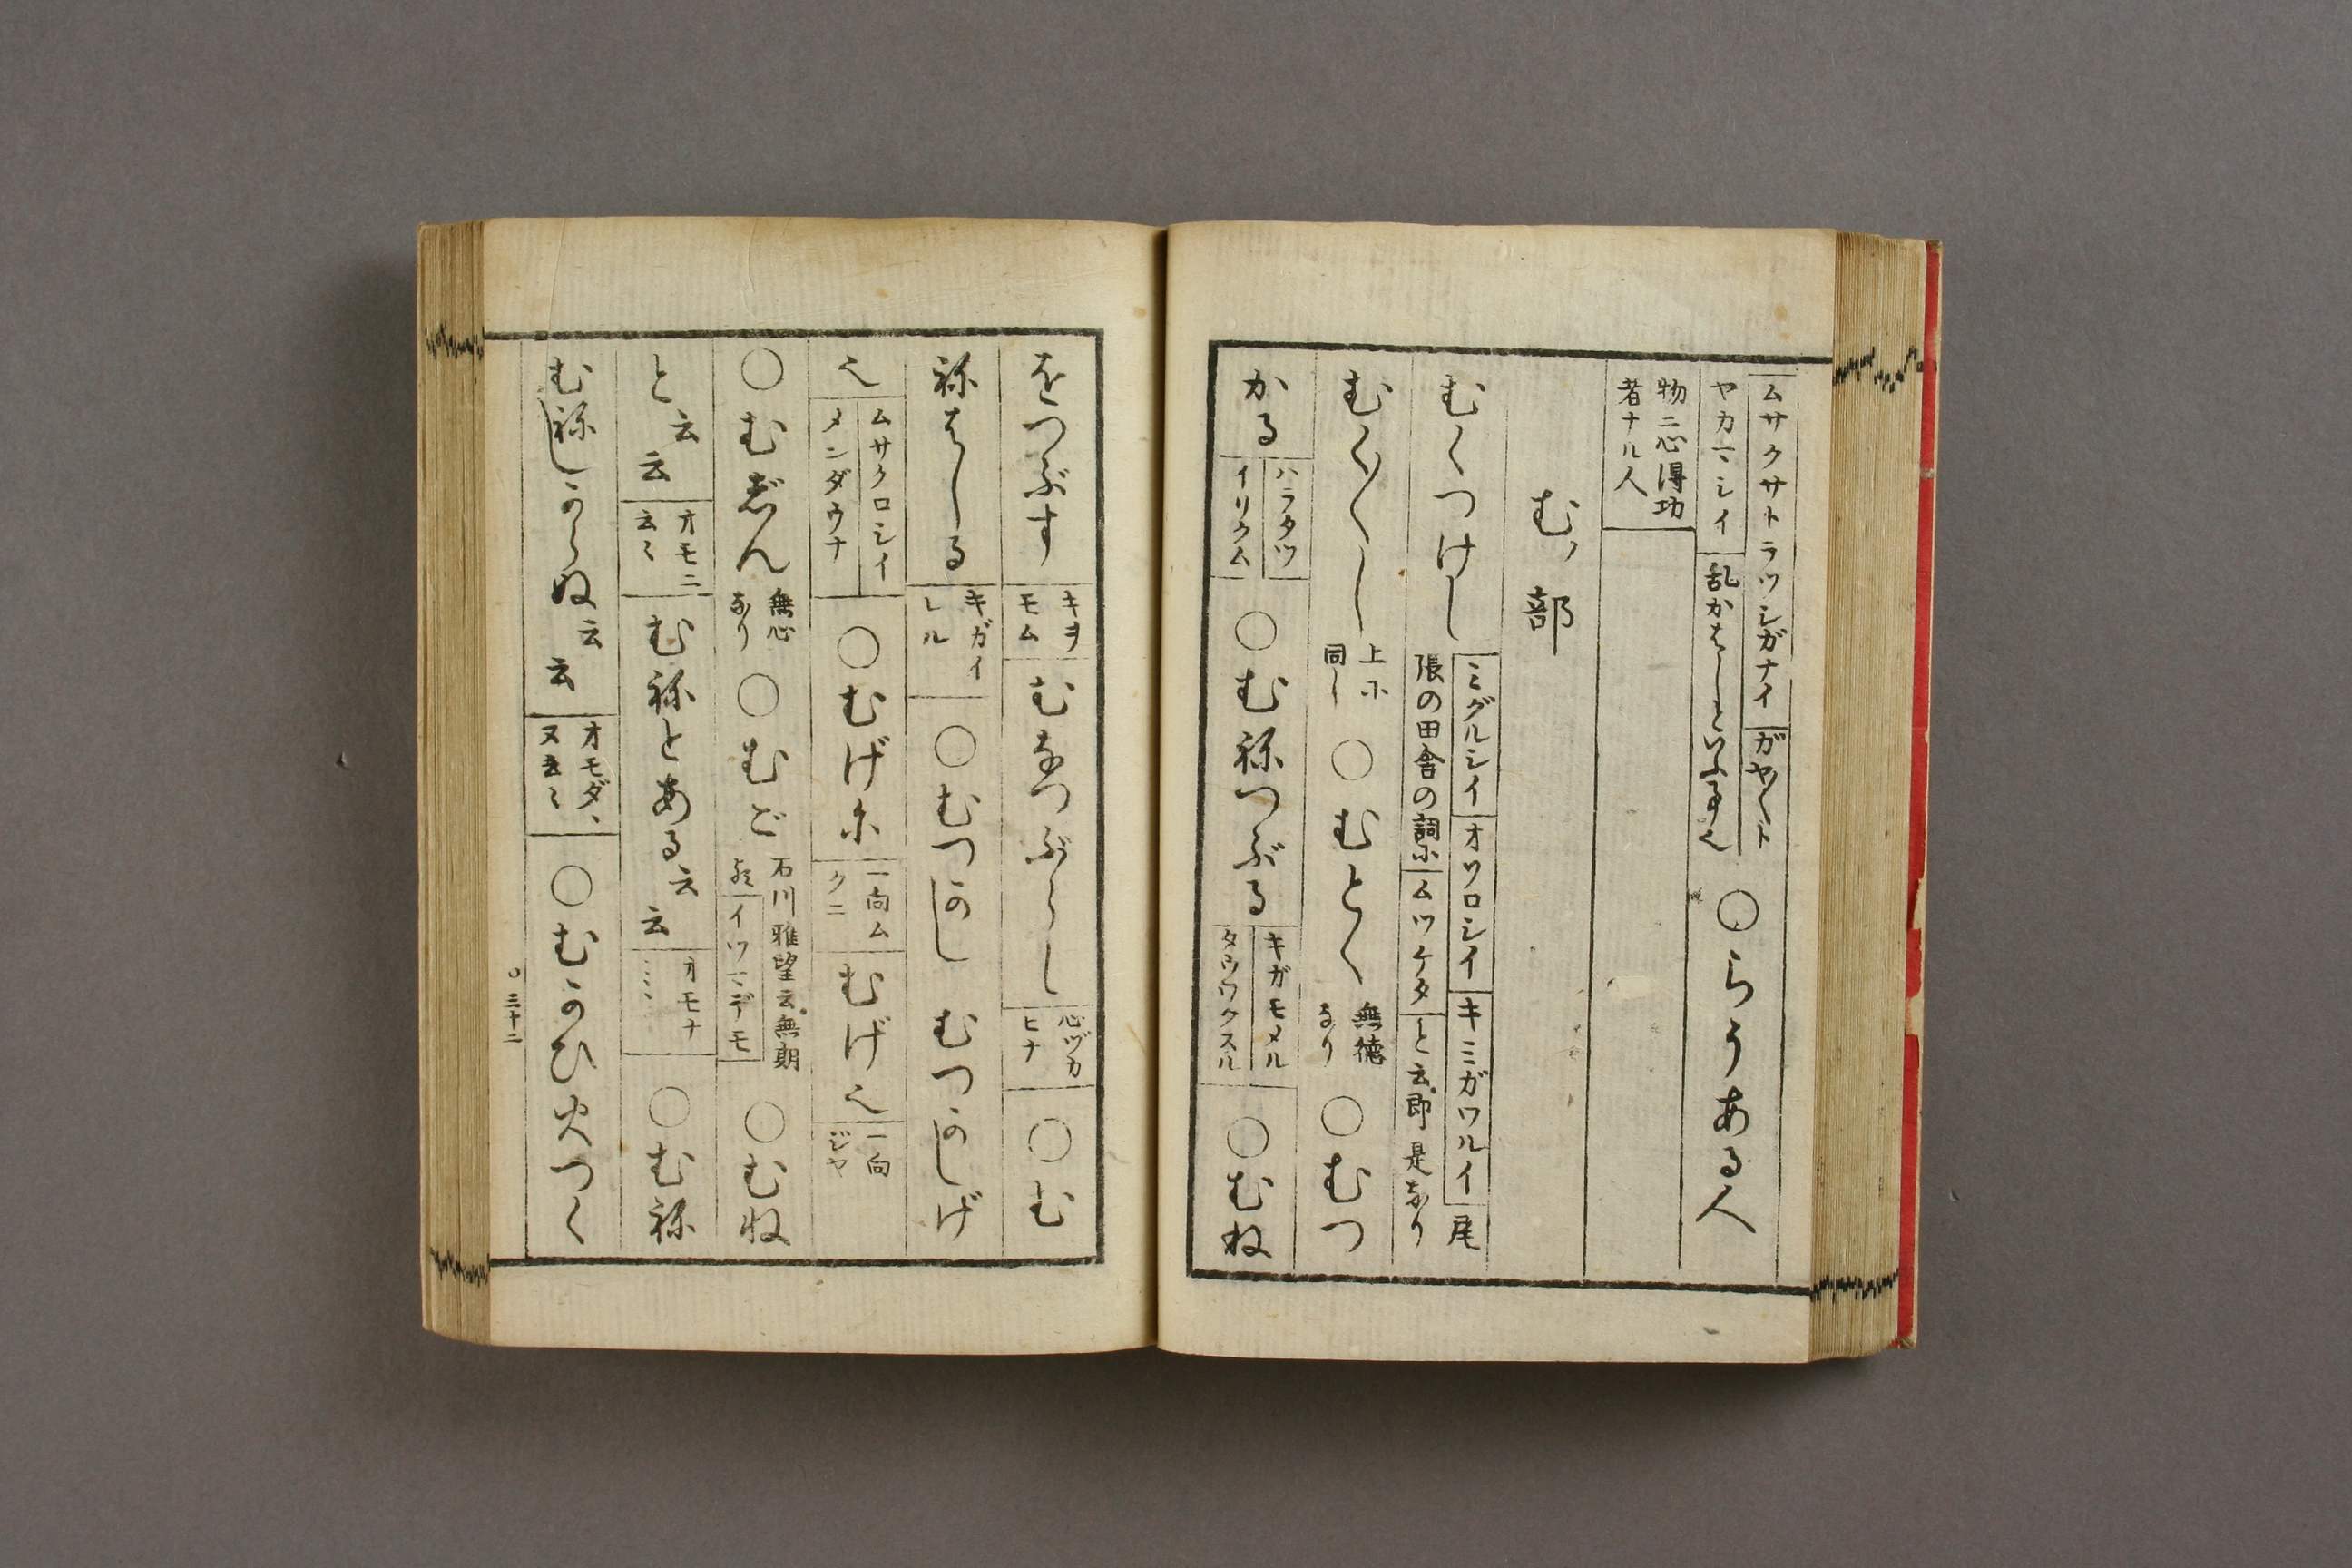 ムサクサトラツシガナイ ガヤ〳〵ト
ヤカマシイ 乱かはしといふ事也 ○らうある人
物ニ心得功
者ナル人
む ノ 部
むくつけし ミグルシイ オソロシイ キミガワルイ 尾
張の田舎の詞に ムツケタ と云即是なり
むく〳〵し 上に
同し ○むとく 無徳
なり ○むつ
かる ハラタツ
イリクム ○むねつぶる キガモメル
タウワクスル ○むね
をつぶす キヲ
モム むなつぶらし 心ヅカ
ヒナ ○む
ねはしる キガイ
レル ○むつかし むつかしげ
也 ムサクロシイ
メンダウナ ○むげに 一向ム
クニ むげ也 一向
ジヤ
○むじん 無心
なり ○むご 石川雅望云無期
イツマデモ ○むね
と云云 オモニ
云〻 むねとある云云 オモナ ○むね
むねしからぬ云云 オモダヽ
ヌ云〻 ○むかひ火つく
○三十二